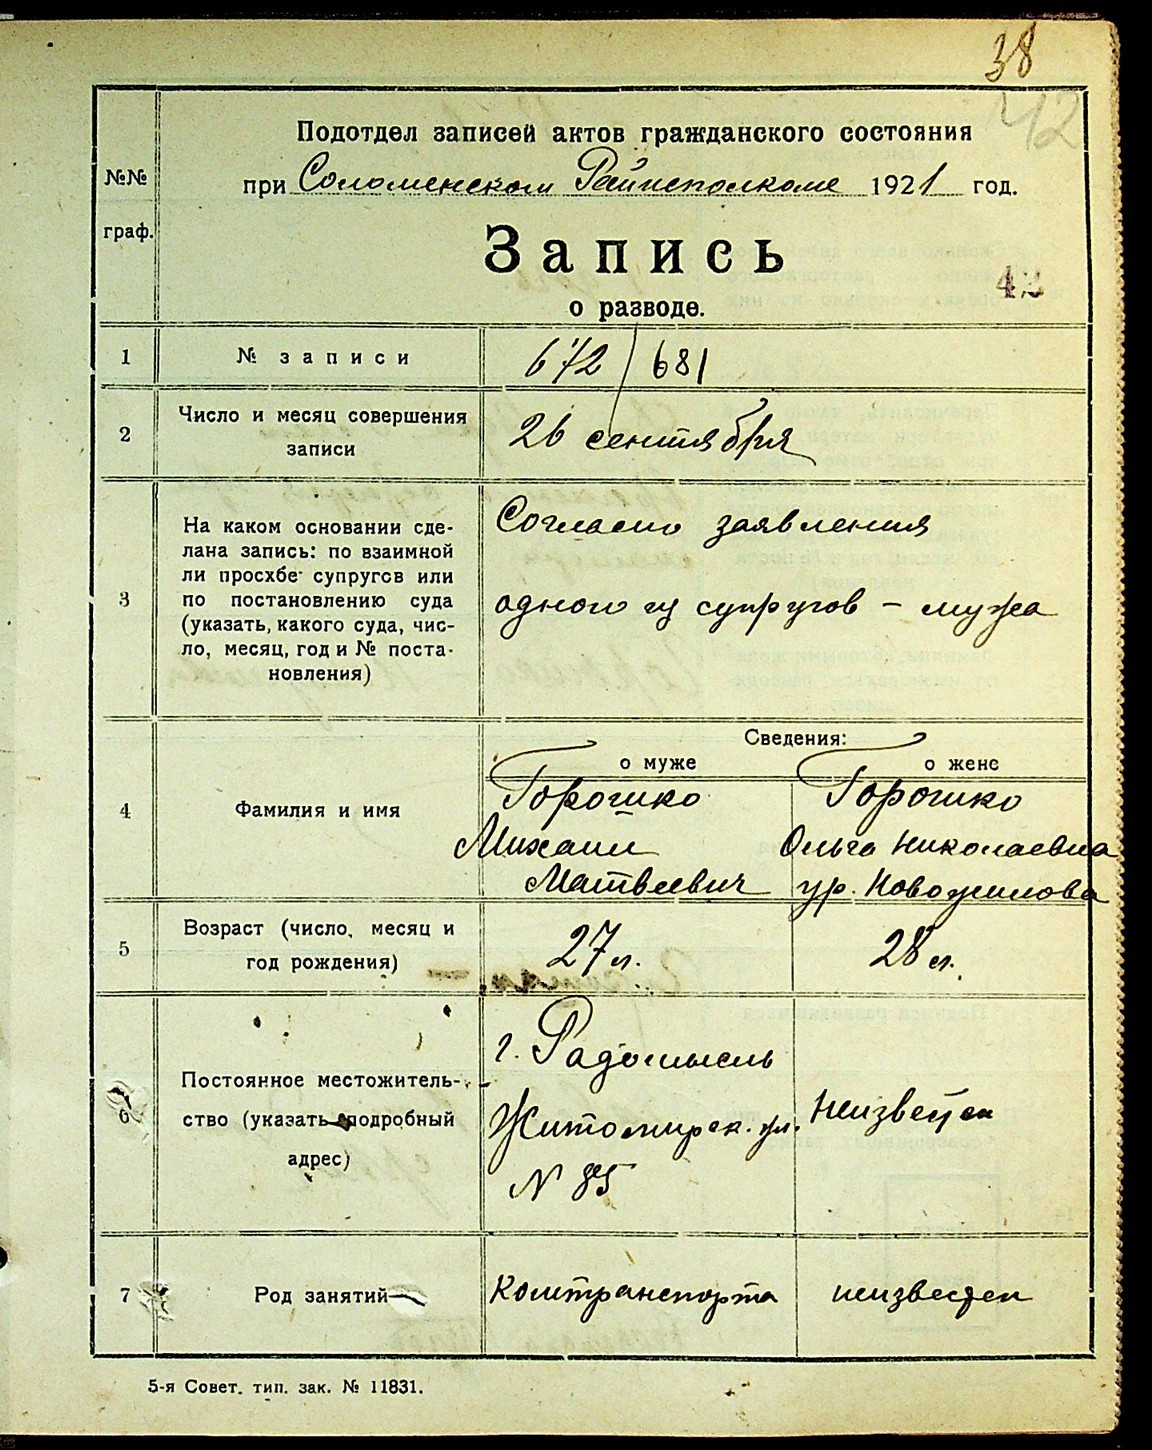 38
42
Подотдел записей актов гражданского состояния
№№
при Соломенском Райисполкоме 1921 год.
граф.
Запись
42
о разводе.
1 № записи 672/681
2 Число и месяц совершения записи 26 сентября
3 На каком основании сде-
лана запись: по взаимной
ли просхбе супругсв или
по постановлению суда
(указать, какого суда, чис-
ло, месяц, год и № поста-
новления)
Согласно заявления
одного из супругов – мужа
Сведения:
о муже о жене
4 Фамилия и имя
Горошко
Михаил
Матвеевич
Горошко
Ольга Николаевна
ур. Новожилова
5 Возраст (число, месяц и
год рождения)
27 л. 28 л.
6 Постоянное местожитель-
ство (указать подробный
адрес)
г. Радомысль
Житомирск. ул.
N 85
неизвестен
7 Род занятий Комтранспорта неизвестен
5-я Совет. тип. зак. № 11831.